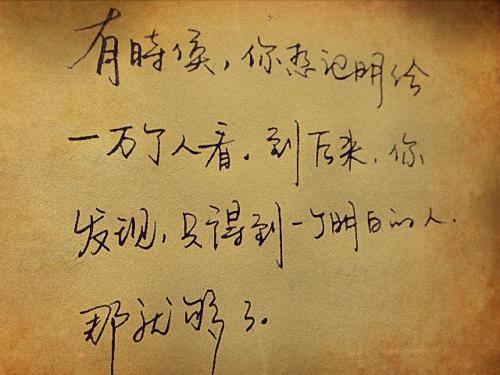 有時侯，你想记明给
一万个人看。到后来，你
发现，只得到一个明白的人.
那就够了。